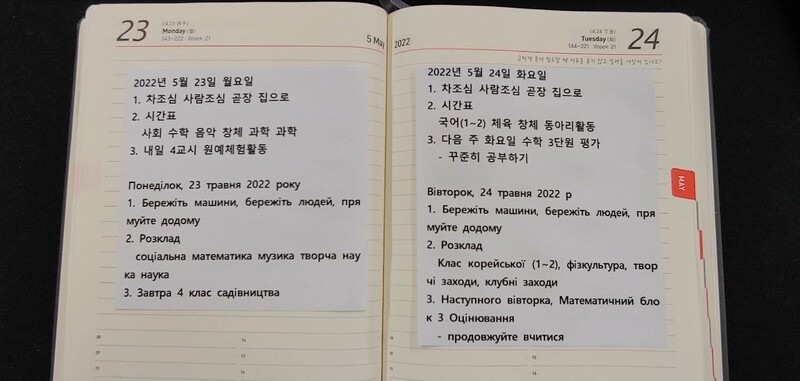 23
(4.23 丙子)
Monday (월)
143-222 Week 21
5 May
2022년 5월 23일 월요일
1. 차조심 사람조심 곧장 집으로
2. 시간표
사회 수학 음악 창체 과학 과학
3. 내일 4교시 원예체험활동
Понеділок, 23 травня 2022 року
1. Бережіть машини, бережіть людей, пря
муйте додому
2. Розклад
соціальна математика музика творча нау
ка наука
3. Завтра 4 клас садівництва
2022
(4.24 丁丑)
Tuesday (화)
144-221 Week 21
24
2022년 5월 24일 화요일
1. 차조심 사람조심 곧장 집으로
2. 시간표
국어(1~2) 체육 창체 동아리활동
3. 다음 주 화요일 수학 3단원 평가
- 꾸준히 공부하기
Вівторок, 24 травня 2022 р
1. Бережіть машини, бережіть людей, пря
муйте додому
2. Розклад
Клас корейської (1~2), фізкультура, твор
чі заходи, клубні заходи
3. Наступного вівторка, Математичний бло
к 3 Оцінювання
- продовжуйте вчитися
MAY